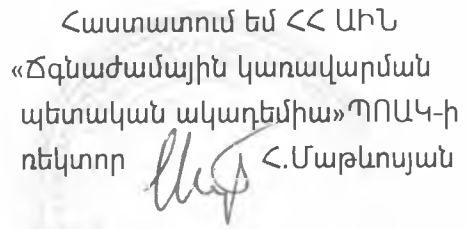 Հաստատում եմ ՀՀ ԱԻՆ
«Ճգնաժամային կառավարման
պետական ակադեմիա»ՊՈԱԿ-ի
ռեկտոր Հ.Մաթևոսյան